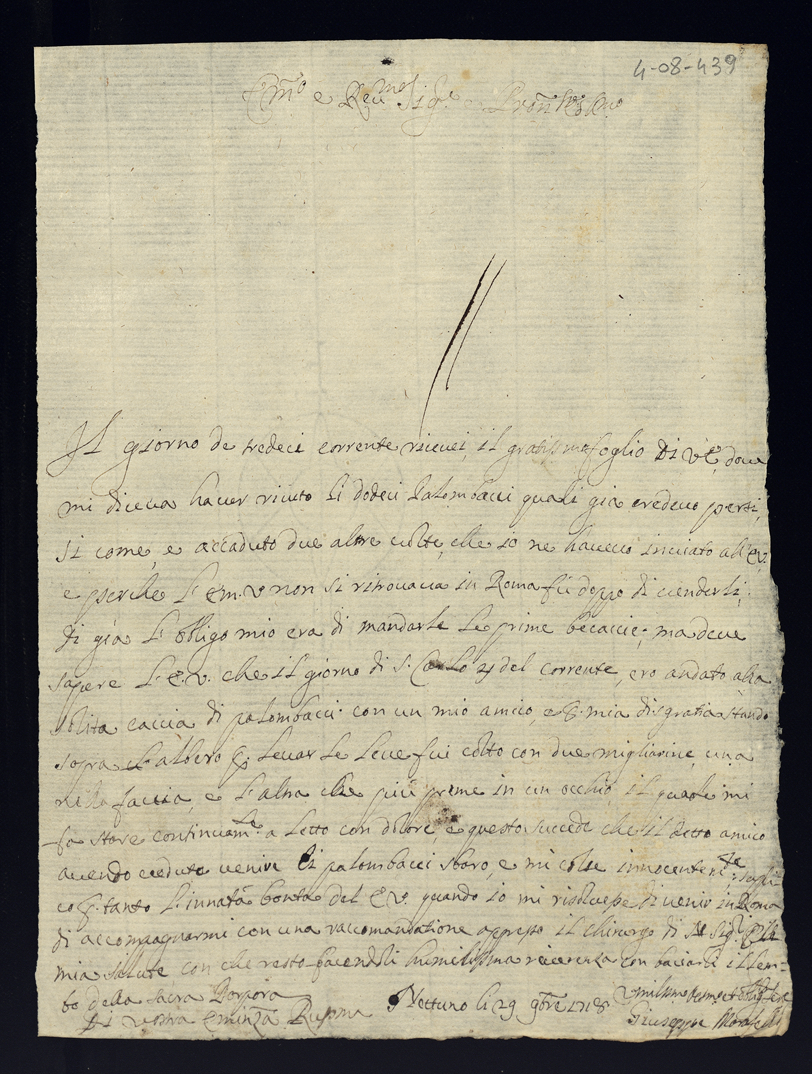 4-08-439
Em̃o e Reu.mo Sig.re e Pron̄
Il giorno de tredeci corrente riceuei, il gratissimo foglio di V.E. doue
mi diceua hauer riceuto li dodeci Palombacci quali gia credeuo persi,
si come, e accaduto due altre uolte, che io ne haueuo inuiato all'E.V.
e perche l'Em. V non si ritrouaua in Roma fu doppo di uenderli;
di gia l'obligo mio era di mandarle le prime beccaccie; ma deue
sapere l'E.V. che il giorno di S. Carlo 4 del corrente, ero andato alla
solita caccia di palombacci con un mio amico, e p. mia disgratia stando
sopra l'albero p. leuar le leue fui colto con due migliarine, una
nella faccia, e l'altra che più preme in un occhio, il quale mi
fa stare continuam.te a letto con dolore, e questo succede che il detto amico
auendo ueduto uenire li palombacci sbaro, e mi colse innocentem.te
tanto l'innata bonta del E.V. quando io mi risoluesse di uenir in Roma
di accompagnarmi con una raccomandatione appresso il chirurgo di
mia salute con che resto facendoli humilissima riuerenza con baciarli il lem-
bo della Sacra Porpora
Di Vostra Eminẽza Nettuno li 29 9bre 1718
Giuseppe